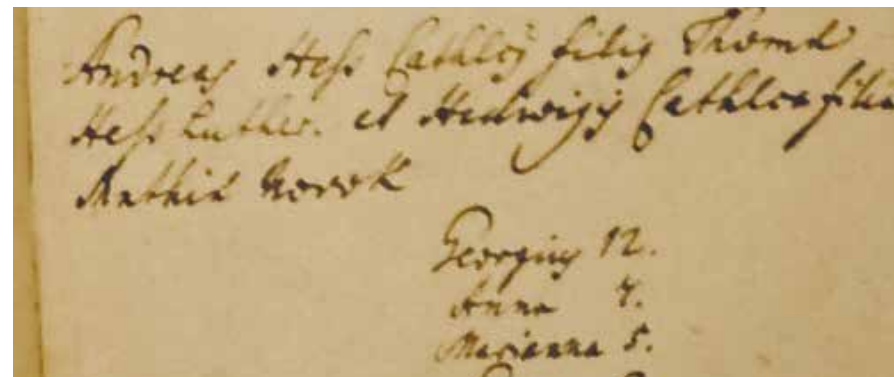 Andreas Hess Cathlcꝯ filiꝯ Thomæ
Hess Luther. et Hedwigis Cathlca filia
Mathiæ Norok
Georgius 12.
Anna 7.
Marianna 5.